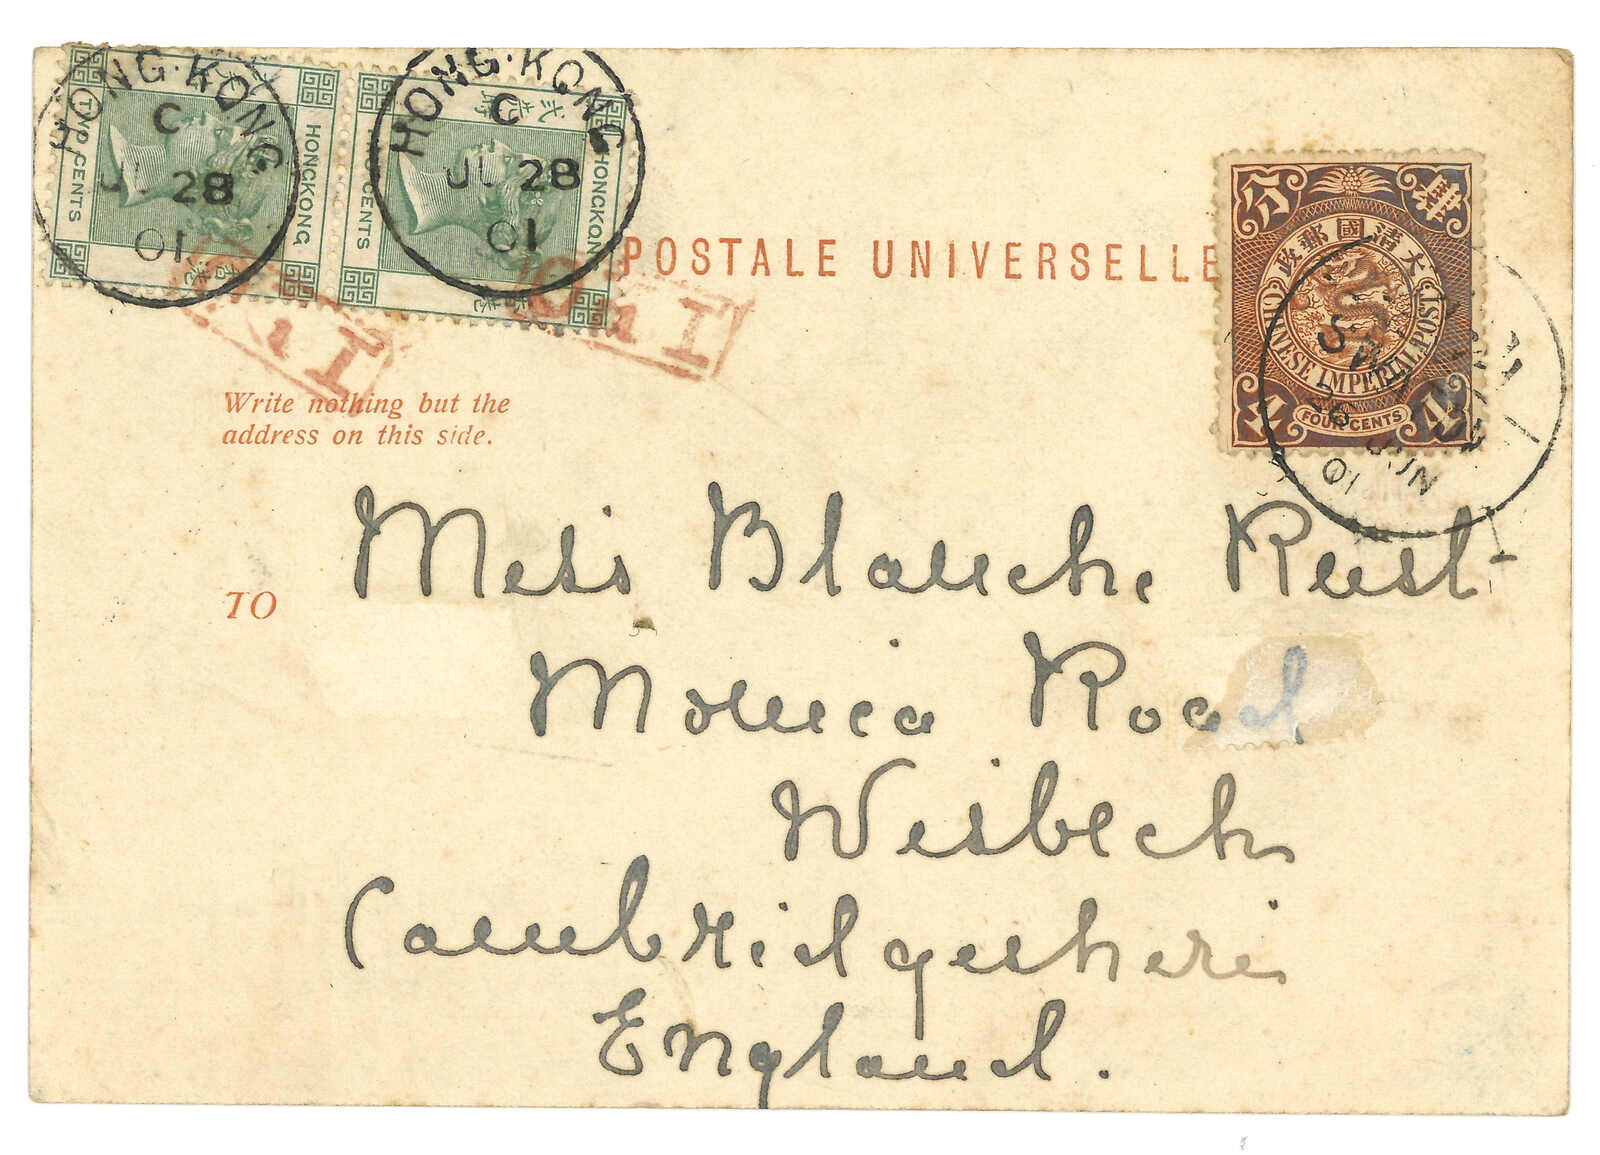 HONG·KONG
C
JU 28
01
HONG·KONG
C
JU 28
01
TWO CENTS
HONGKONG
CENTS
HONGKON
POSTALE UNIVERSELLE
大清國郵政
CHINESE IMPERIAL POST
FOUR CENTS
4
4
JUN
01
Write nothing but the
address on this side.
TO
Miss Blanche Rust
Monica Road
Wisbech
Cambridgeshire
England.